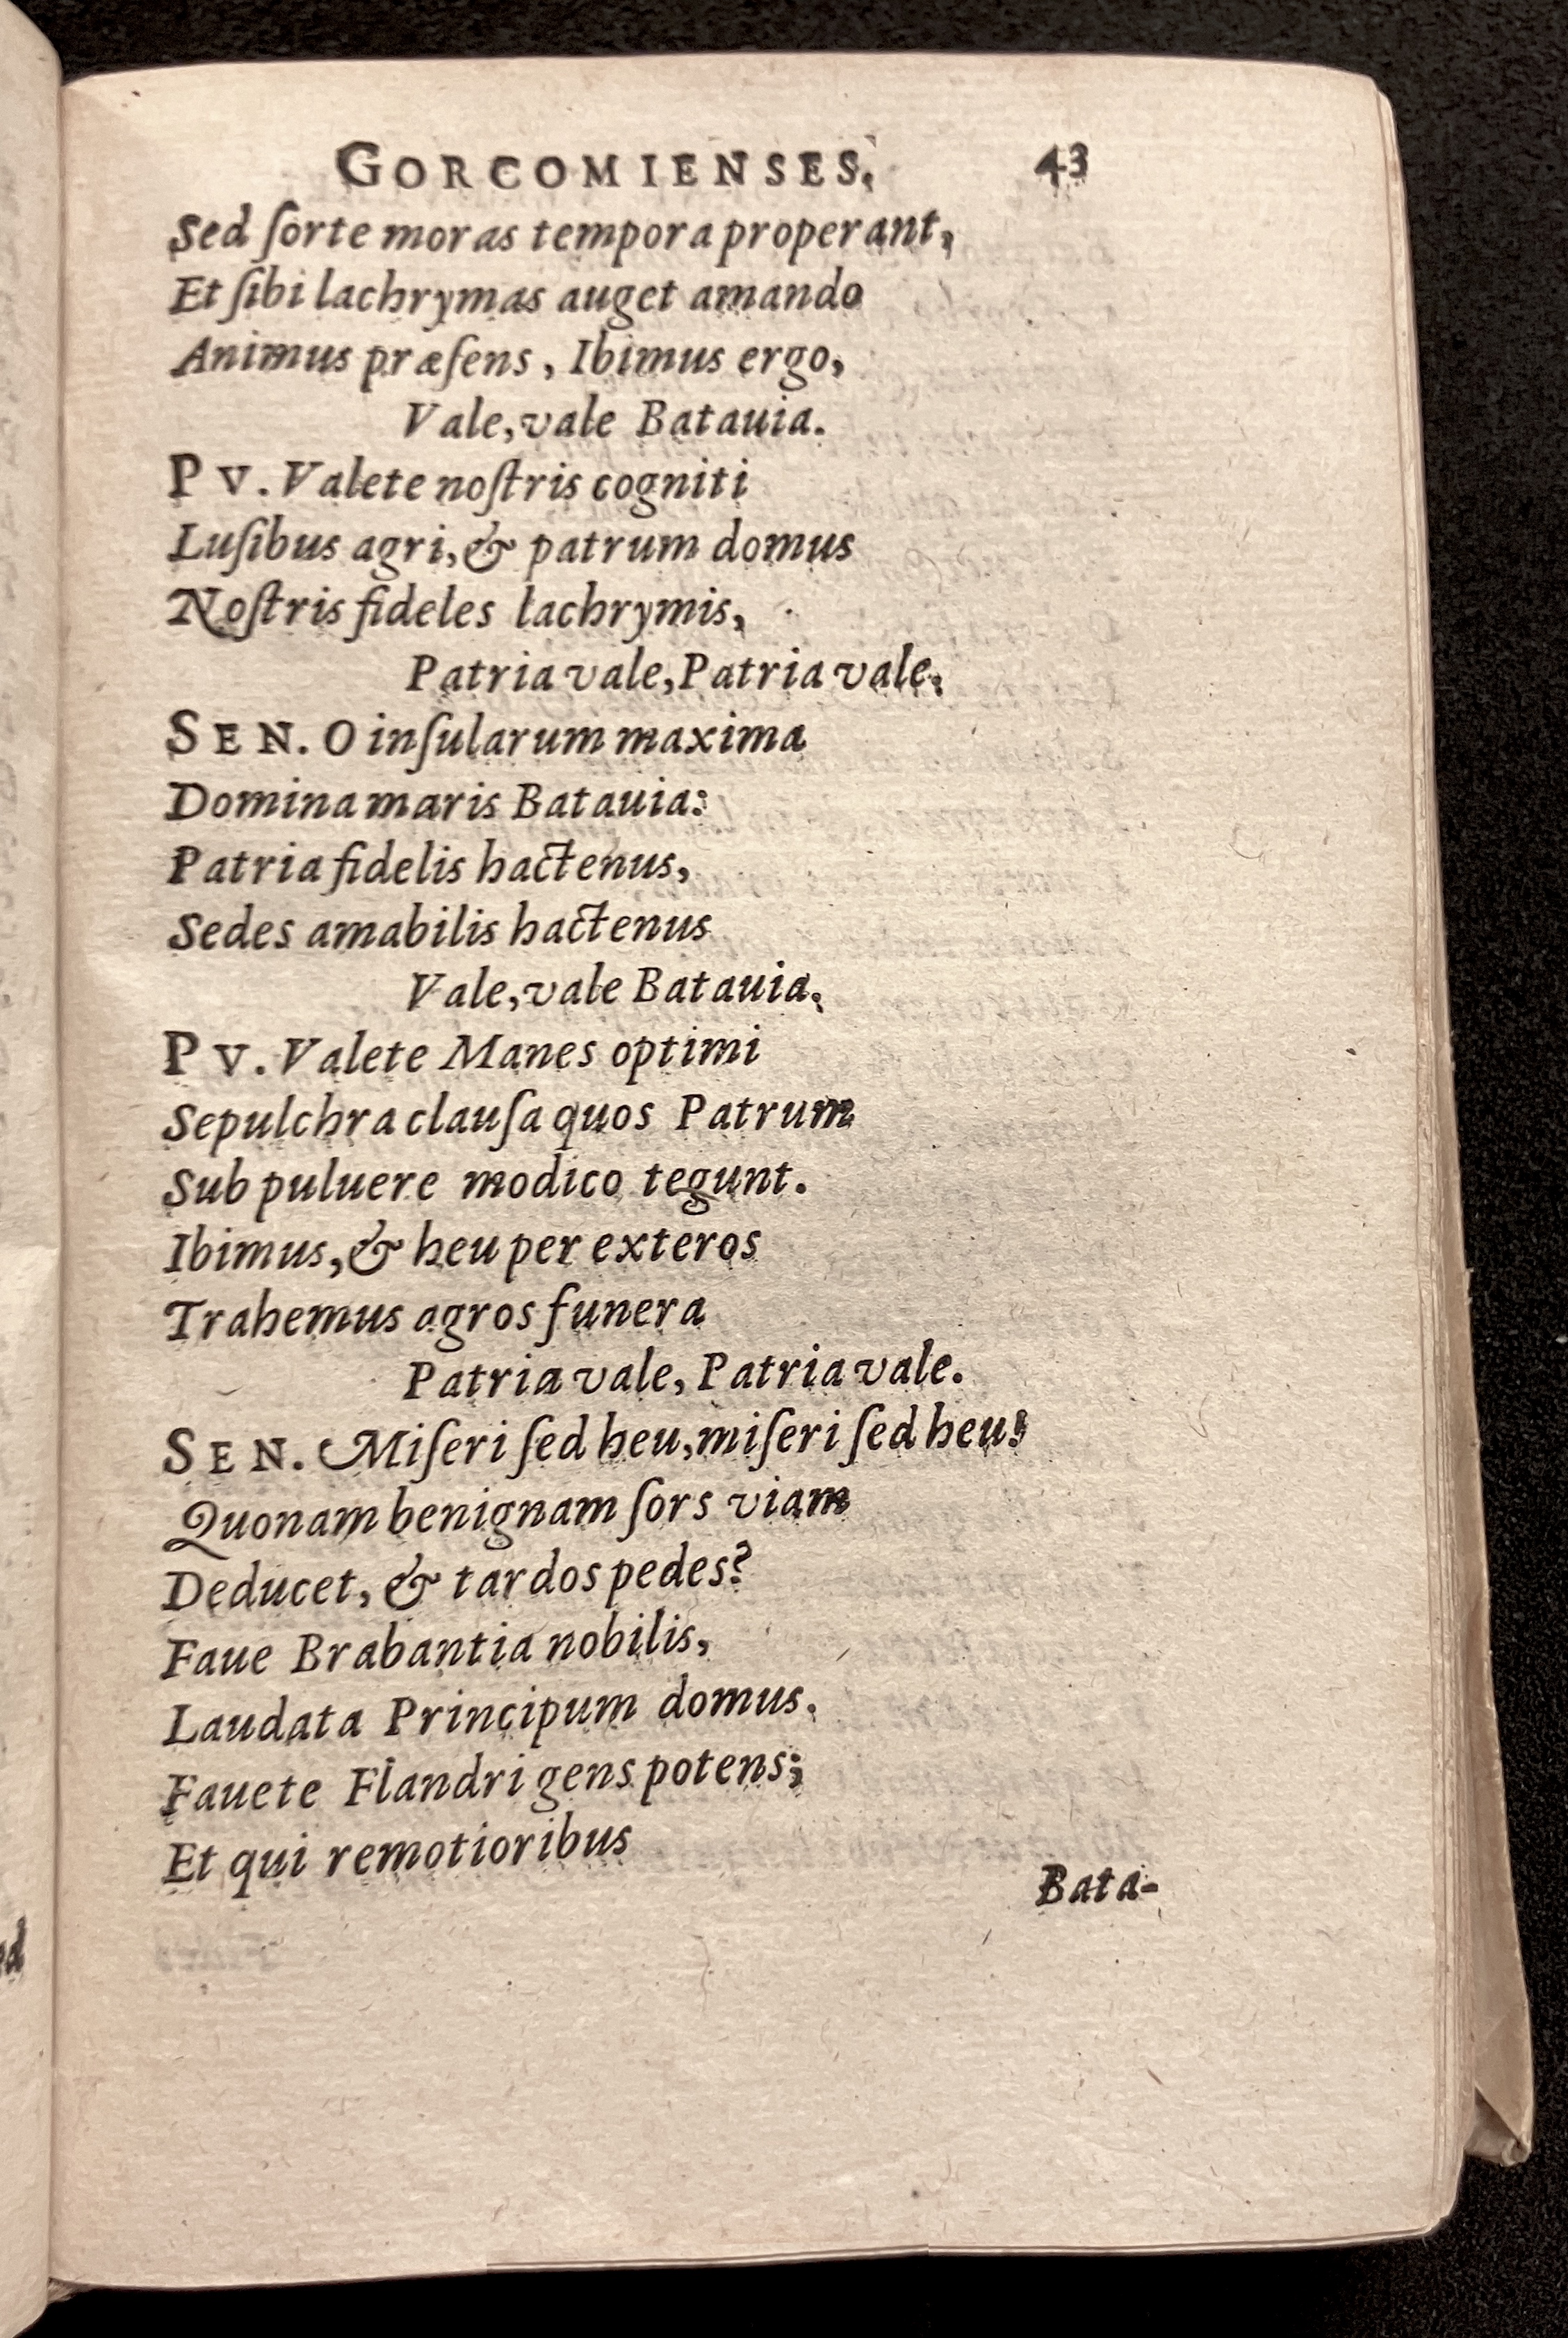 GORCOMIENSES. 43
Sed ſorte moras tempora properant,
Et ſibi lachrymas auget amando
Animus præſens, Ibimus ergo,
Vale, vale Batauia.
PV. Valete noſtris cogniti
Luſibus agri, & patrum domus
Noſtris fideles lachrymis,
Patria vale, Patria vale.
SEN. O inſularum maxima
Domina maris Batauia:
Patria fidelis hactenus,
Sedes amabilis hactenus
Vale, vale Batauia.
PV. Valete Manes optimi
Sepulchra clauſa quos Patrum
Sub puluere modico tegunt.
Ibimus, & heu per exteros
Trahemus agros funera
Patria vale, Patria vale.
SEN. Miſeri ſed heu, miſeri ſed heu!
Quonam benignam ſors viam
Deducet, & tardos pedes?
Faue Brabantia nobilis,
Laudata Principum domus.
Fauete Flandri gens potens;
Et qui remotioribus
Bata-